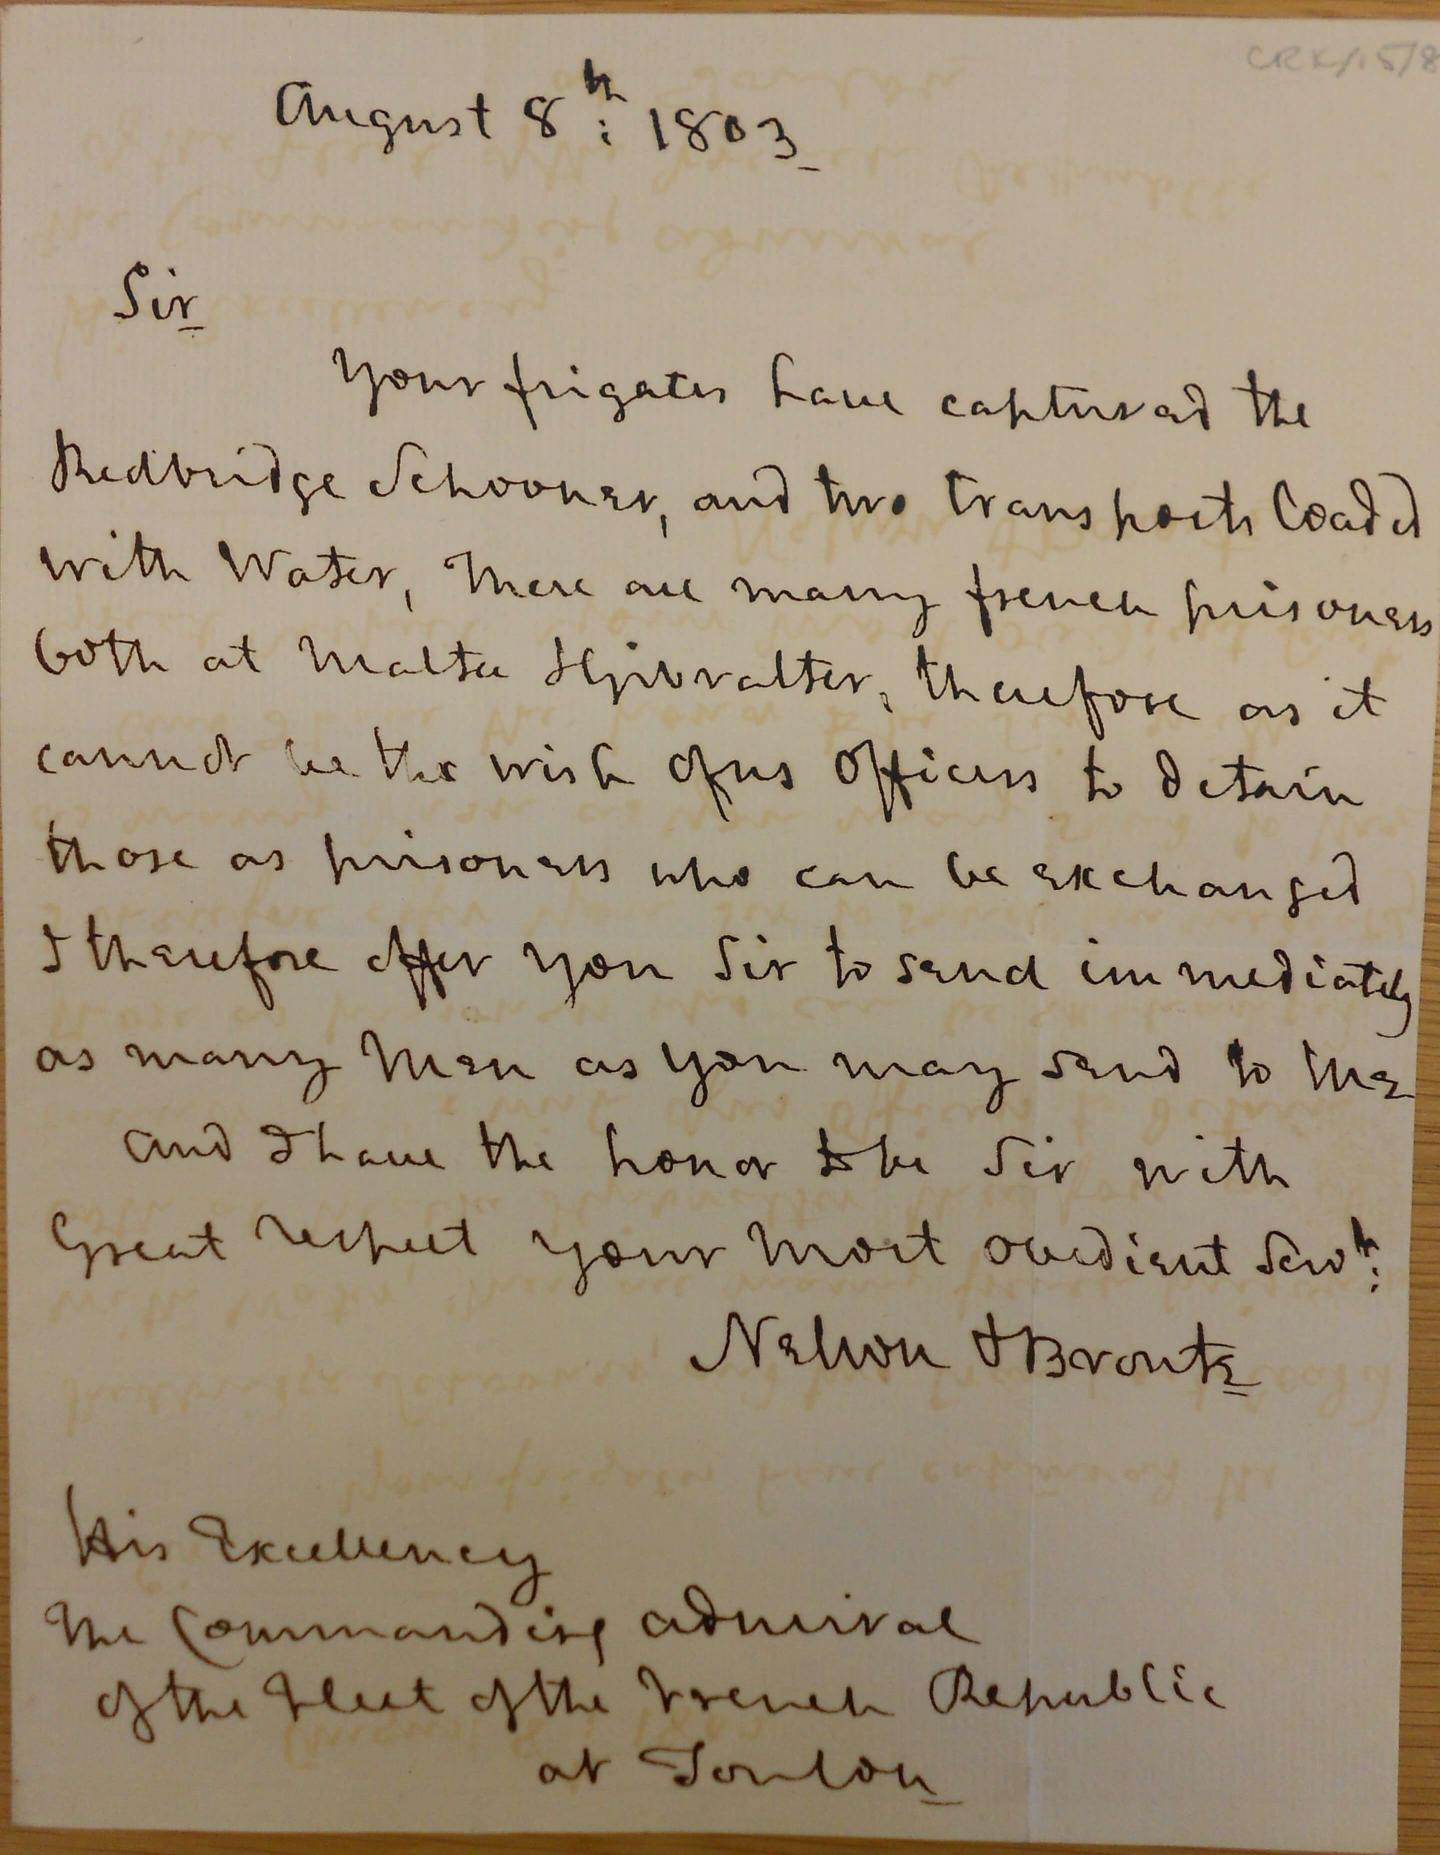 CRK/15/8
August 8th: 1803
Sir
Your frigates have captured the
Redbridge Schooner, and two transports loaded
with Water, There are many french prisoners
both at Malta & Gibralter, therefore as it
cannot be the wish of us Officers to detain
those as prisoners who can be exchanged
I therefore offer you Sir to send immediately
as many Men as you may send to me
and I have the honor to be Sir with
Great respect your most obedient Servt:
Nelson & Bronte
His Excellency
The Commanding Admiral
of the Fleet of the French Republic
at Toulon